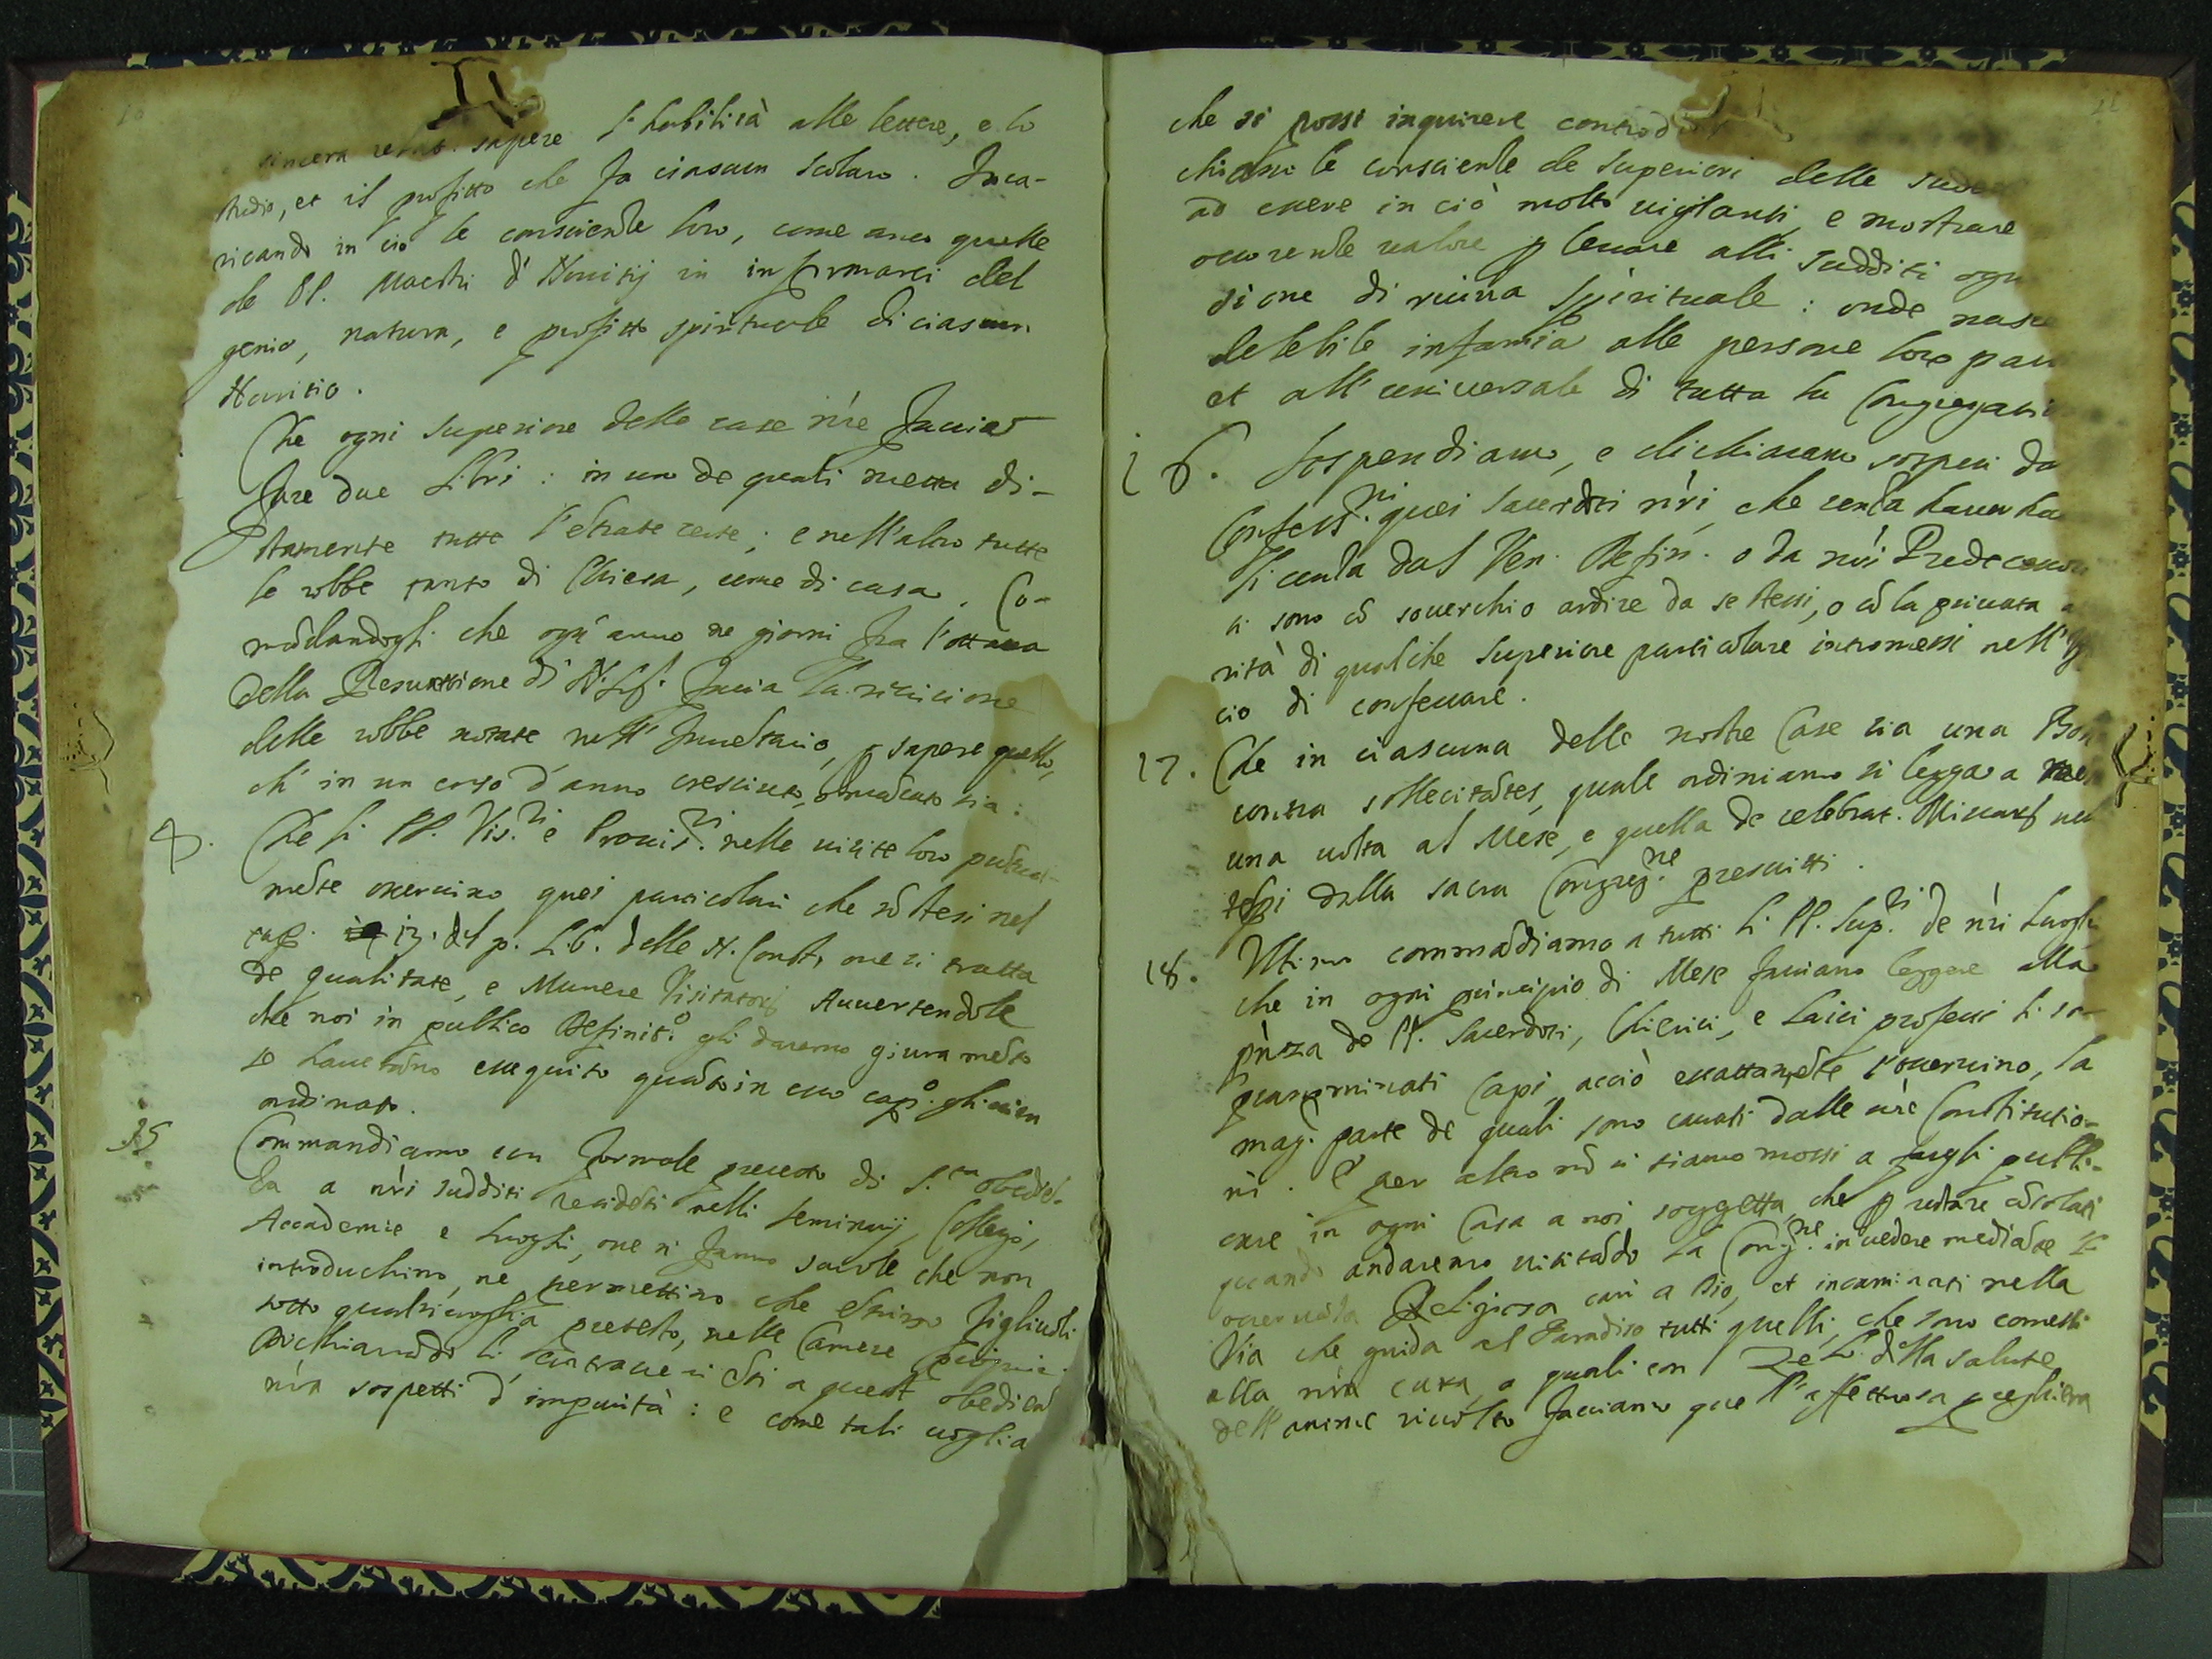 10
sincera relat. sapere l'habilità alle lettere, e lo
studio, et il profitto che fa ciascun scolaro. Inca-
ricando in ciò le conscienze loro, come anco quelle
de PP. Maestri d'Novitij in informarci del
genio, natura, e profitto spirituale di ciascun
Novitio.
Che ogni superiore delle case nre faccia
fare due Libri: in uno de quali metta di-
stamente tutte l'entrate certe; e nell'altro tutte
le robbe tanto di Chiesa, come di casa. Co-
mādandogli che ogn'anno ne giorni fra l'ottava
della Resurretione di N. S. faccia la
delle robbe notate nell'Inventario, p sapere quello,
ch'in un corso d'anno cresciuto, o mācato sia:
Che li PP. Vis.ri e Provis.ri nelle visite loro
mēte osservino quei particolari che sō stesi nel
cap. 13. del p. Lib. delle N. Const. ove si tratta
de qualitate, e Munere Visitatoris Avvertendole
che noi in publico Definit.o gli daremo giuramēto
se haverāno esseguito quāto in esso cap.o gli vien
ordinato.
15 Commandiamo con formale precetto di S.ta obediē-
za a nri sudditi residēti nelli seminarij, Collegi,
Accademie e luoghi, ove si fanno scuole, che non
introduchino, ne permettino che entrino figliuoli
sotto qualsivoglia pretesto, nelle Camere
Dichiarādo li a quest'obediēn
nra sospetti d'impurità: e come tali voglia
11
che si possi inquirere contro di
le conscienze de superiori delle
ad essere in ciò molto vigilanti, e mostrare
occorrente valore p levare alli sudditi ogn
sione di ruina spirituale: onde nasce
delebile infamia alle persone loro par
et all'universale di tutta la Congregati
16. Sospendiamo, e dichiaramo sospesi da
Confess.ni quei sacerdoti nri, che senza haver ha
licenza dal Ven. Defin. o da nri Predecessori
si sono cō soverchio ardire da se stessi, o cō la privata a
rità di qualche superiore particolare intromessi nell'
cio di confessare.
17. Che in ciascuna delle nostre Case sia una Bol
contra sollecitātes, quale ordiniamo si legga a
una volta al Mese, e quella de celebrat. Missarū nel
tēpi dalla sacra Congreg.ne prescritti.
18. Ultimo commādiamo a tutti li PP. Sup.ri de nri luoghi
che in ogni principio di Mese facciano leggere alla
pñza de PP. sacerdoti, Chierici, e Laici professi li so-
Capi, acciò essattamēte l'osservino, la
mag. parte de quali sono cavati dalle nre Constitutio-
ni. E per altro nō ci siamo mossi a fargli publi-
care in ogni Casa a noi soggetta, che p restare cōsolati
quando andaremo visitādo la Cong.ne in vedere mediāte
osservāza Religiosa cari a Dio, et incaminati nella
Via che guida al Paradiso tutti quelli, che sono comessi
alla nra cura, a quali con zelo della salute
dell'anime facciamo